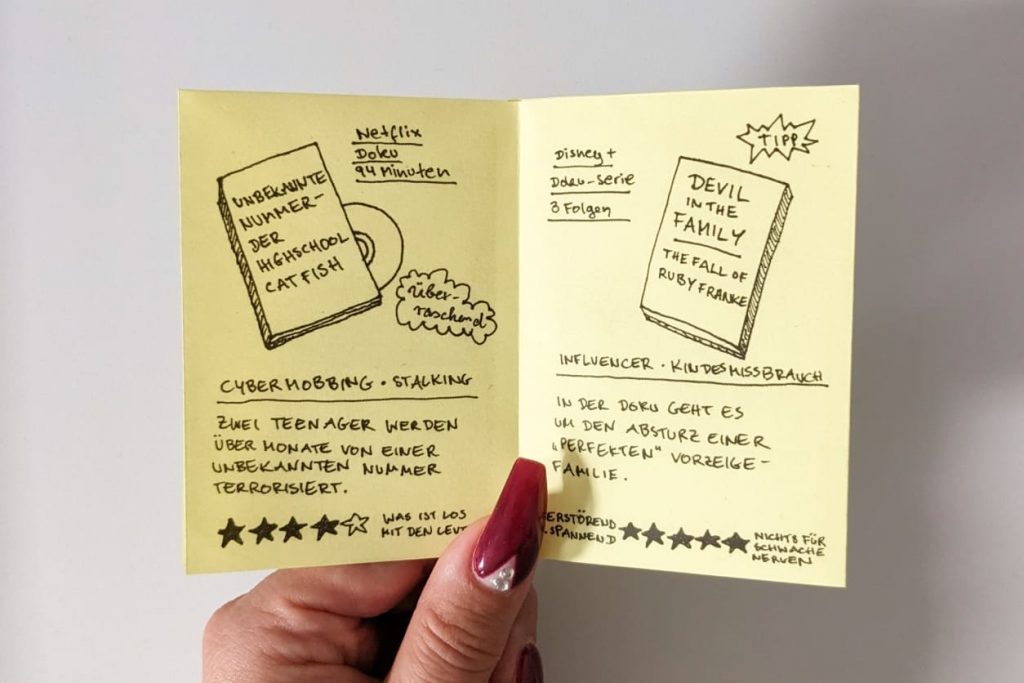 Netflix
Doku
94 Minuten
UNBEKANNTE
NUMMER-
DER
HIGHSCHOOL
CATFISH
Über-
raschend
CYBERMOBBING · STALKING
ZWEI TEENAGER WERDEN
ÜBER MONATE VON EINER
UNBEKANNTEN NUMMER
TERRORISIERT.
WAS IST LOS
MIT DEN
TIPP
Disney+
Doku-Serie
3 Folgen
DEVIL
IN THE
FAMILY
THE FALL OF
RUBY FRANKE
INFLUENCER · KINDESMISSBRAUCH
IN DER DOKU GEHT ES
UM DEN ABSTURZ EINER
„PERFEKTEN" VORZEIGE-
FAMILIE.
NICHTS FÜR
SCHWACHE
NERVEN